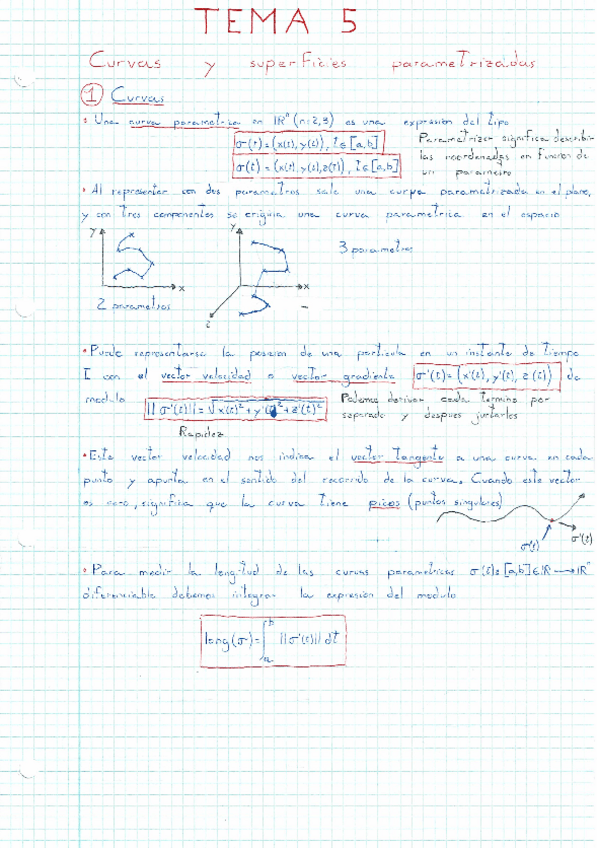 TEMA 5
Curvas y superficies parametrizadas
1 Curvas
• Una curva parametrica en IRⁿ (n=2,3) es una expresion del tipo
σ(t)=(x(t),y(t)), t∈[a,b]
σ(t)=(x(t),y(t),z(t)), t∈[a,b]
Parametrizar significa describir
las coordenadas en funcion de
un parametro
• Al representar con dos parametros sale una curva parametrizada en el plano,
y con tres componentes se una curva parametrica en el espacio
y
x
2 parametros
y
x
z
3 parametros
• Puede representarse la posicion de una particula en un instante de tiempo
I con el vector velocidad o vector gradiente σ'(t)=(x'(t), y'(t), z(t)) de
modulo ||σ'(t)||=√x(t)²+y'(t)²+z'(t)²
Podemos derivar cada termino por
separado y despues juntarlos
Rapidez
• Este vector velocidad nos indica el vector tangente a una curva en cada
punto y apunta en el sentido del recorrido de la curva. Cuando este vector
es cero, significa que la curva tiene picos (puntos singulares)
σ(t)
σ'(t)
• Para medir la longitud de las curvas parametricas σ(t)=[a,b]∈IR→IRⁿ
diferenciable debemos integrar la expresion del modulo
long(σ)=∫ₐᵇ ||σ'(t)|| dt